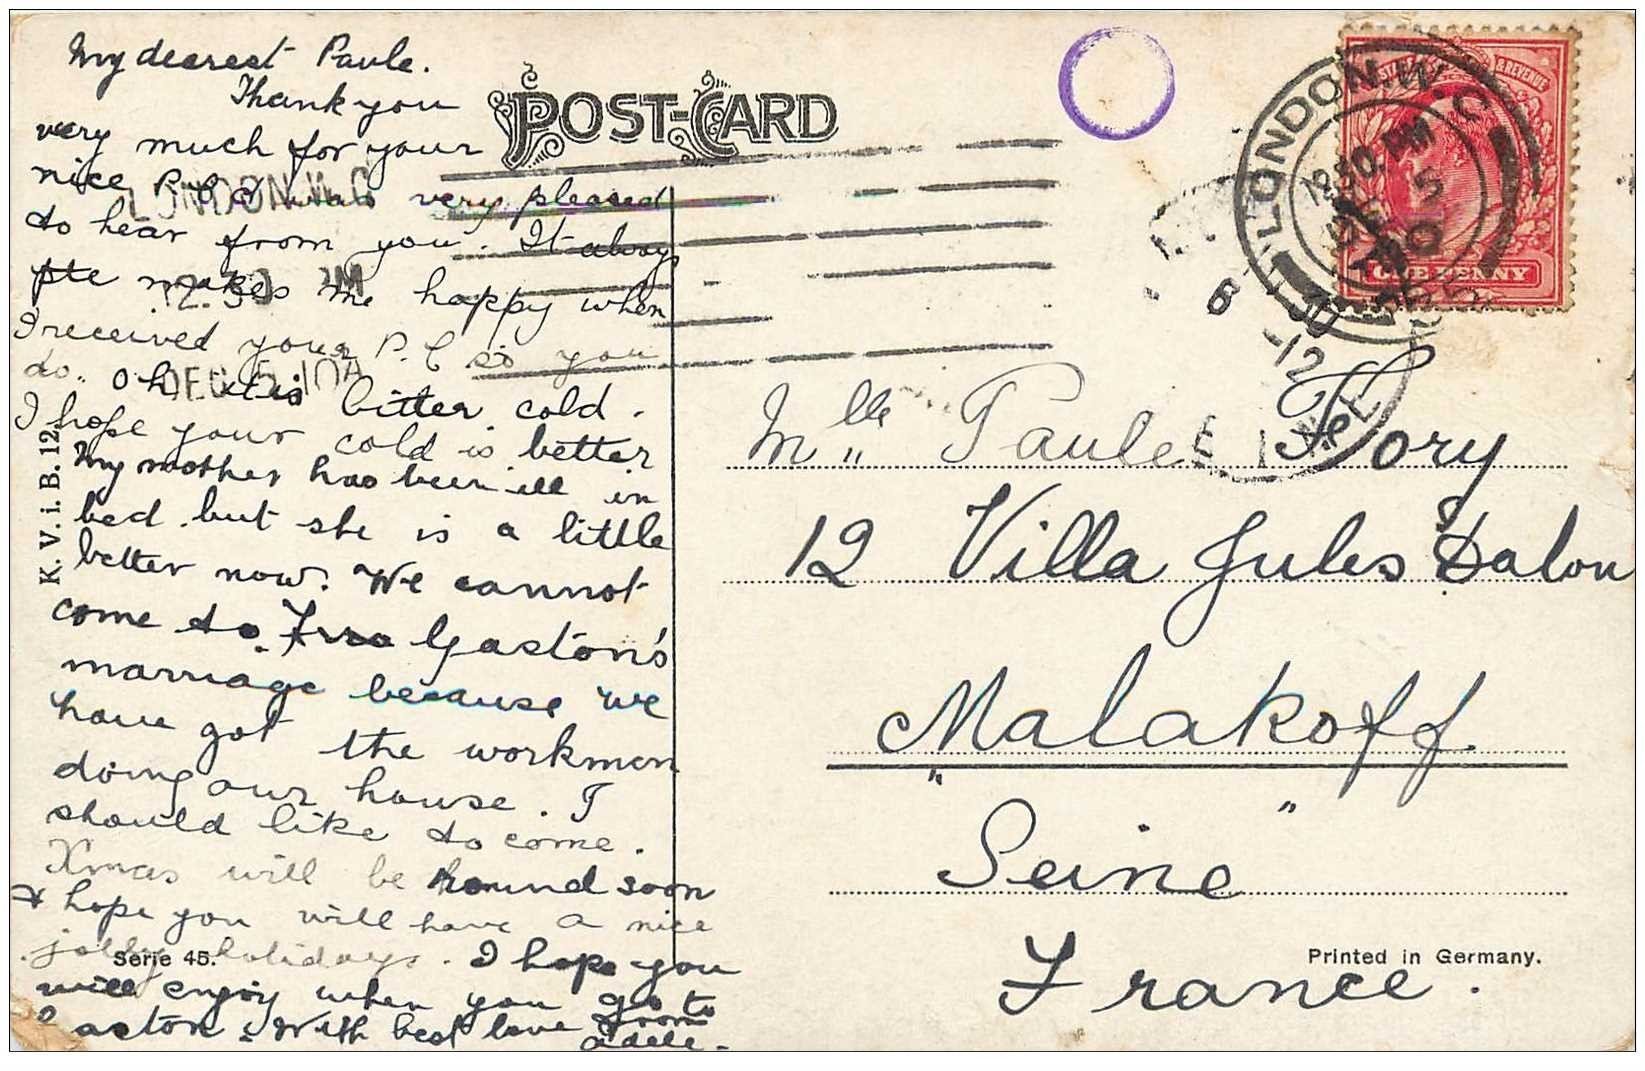 My dearest Paule.
Thank you
very much for your
nice P.C I was very pleased
to hear from you. It always
makes me happy when
I received your P.C so you
do. Oh it is bitter cold.
I hope your cold is better
My mother has been ill in
bed. but she is a little
better now. We cannot
come to Gaston's
marriage because we
have got the workmen
doing our house. I
should like to come.
Xmas will be round soon
I hope you will have a nice
jolly holidays. I hope you
will enjoy when you go to
Gaston. With best love from
Adele.
POST-CARD
K. V. i. B. 12.
Serie 45.
LONDON.W.C
12.30 PM
DEC 5 10A
LONDON.W.C
12.30.PM
DE 5
10
POSTAGE & REVENUE
ONE PENNY
8 30
-12
SEINE
Mlle Paule Flory
12 Villa Jules Dalou
Malakoff
"Seine"
France.
Printed in Germany.